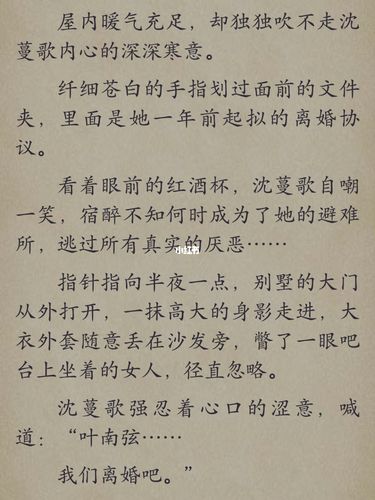 屋内暖气充足，却独独吹不走沈
蔓歌内心的深深寒意。
纤细苍白的手指划过面前的文件
夹，里面是她一年前起拟的离婚协
议。
看着眼前的红酒杯，沈蔓歌自嘲
一笑，宿醉不知何时成为了她的避难
所，逃过所有真实的厌恶……
小红书
指针指向半夜一点，别墅的大门
从外打开，一抹高大的身影走进，大
衣外套随意丢在沙发旁，瞥了一眼吧
台上坐着的女人，径直忽略。
沈蔓歌强忍着心口的涩意，喊
道：“叶南弦……
我们离婚吧。”